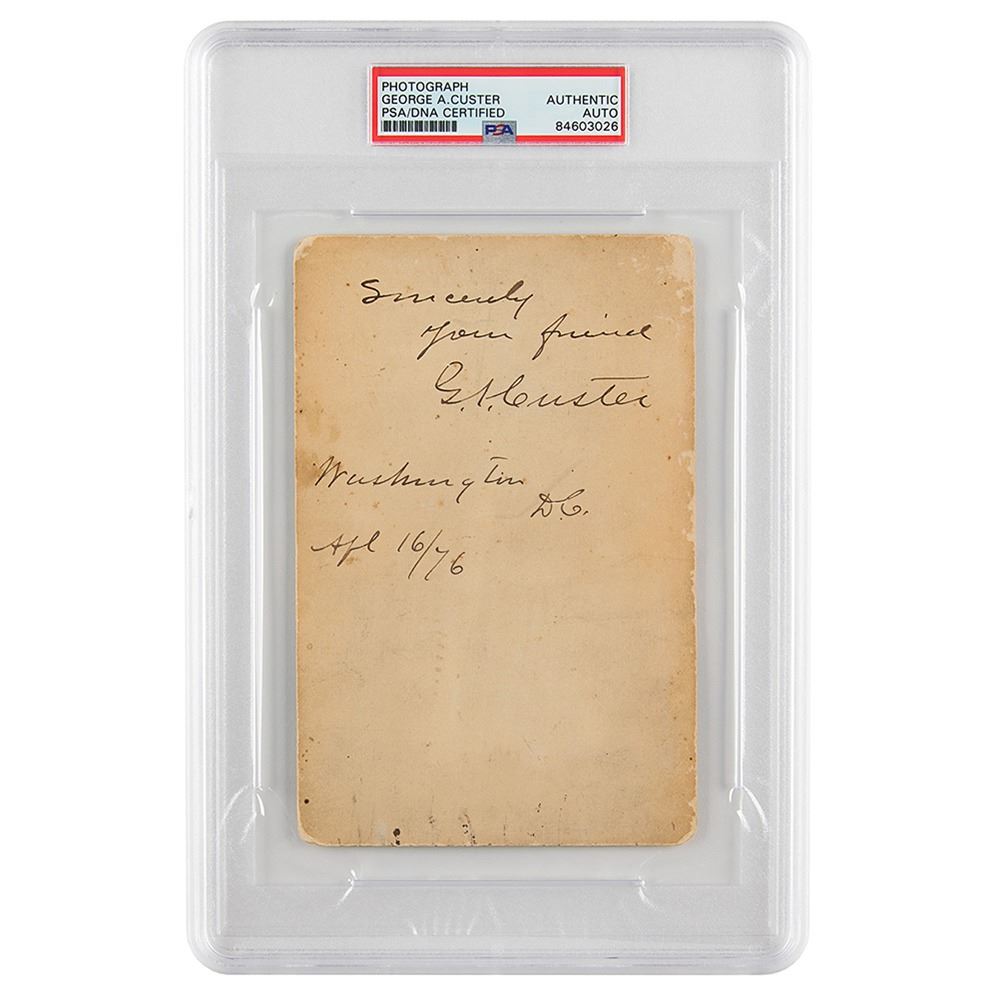 PHOTOGRAPH
GEORGE A.CUSTER
PSA/DNA CERTIFIED
AUTHENTIC
AUTO
84603026
PSA
Sincerely
your friend
G.A.Custer
Washington
D.C.
Apl 16/76